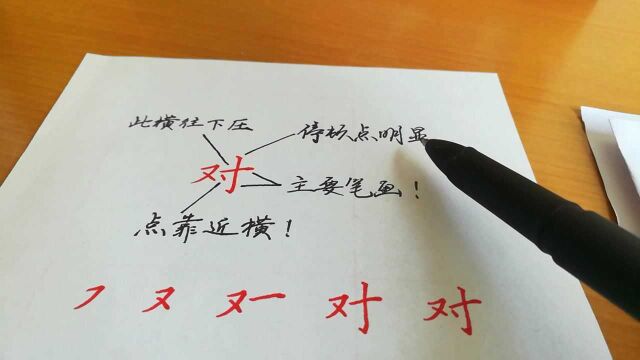 此横往下压
停顿点明显
对
主要笔画！
点靠近横！
㇇ 又 又一 对 对